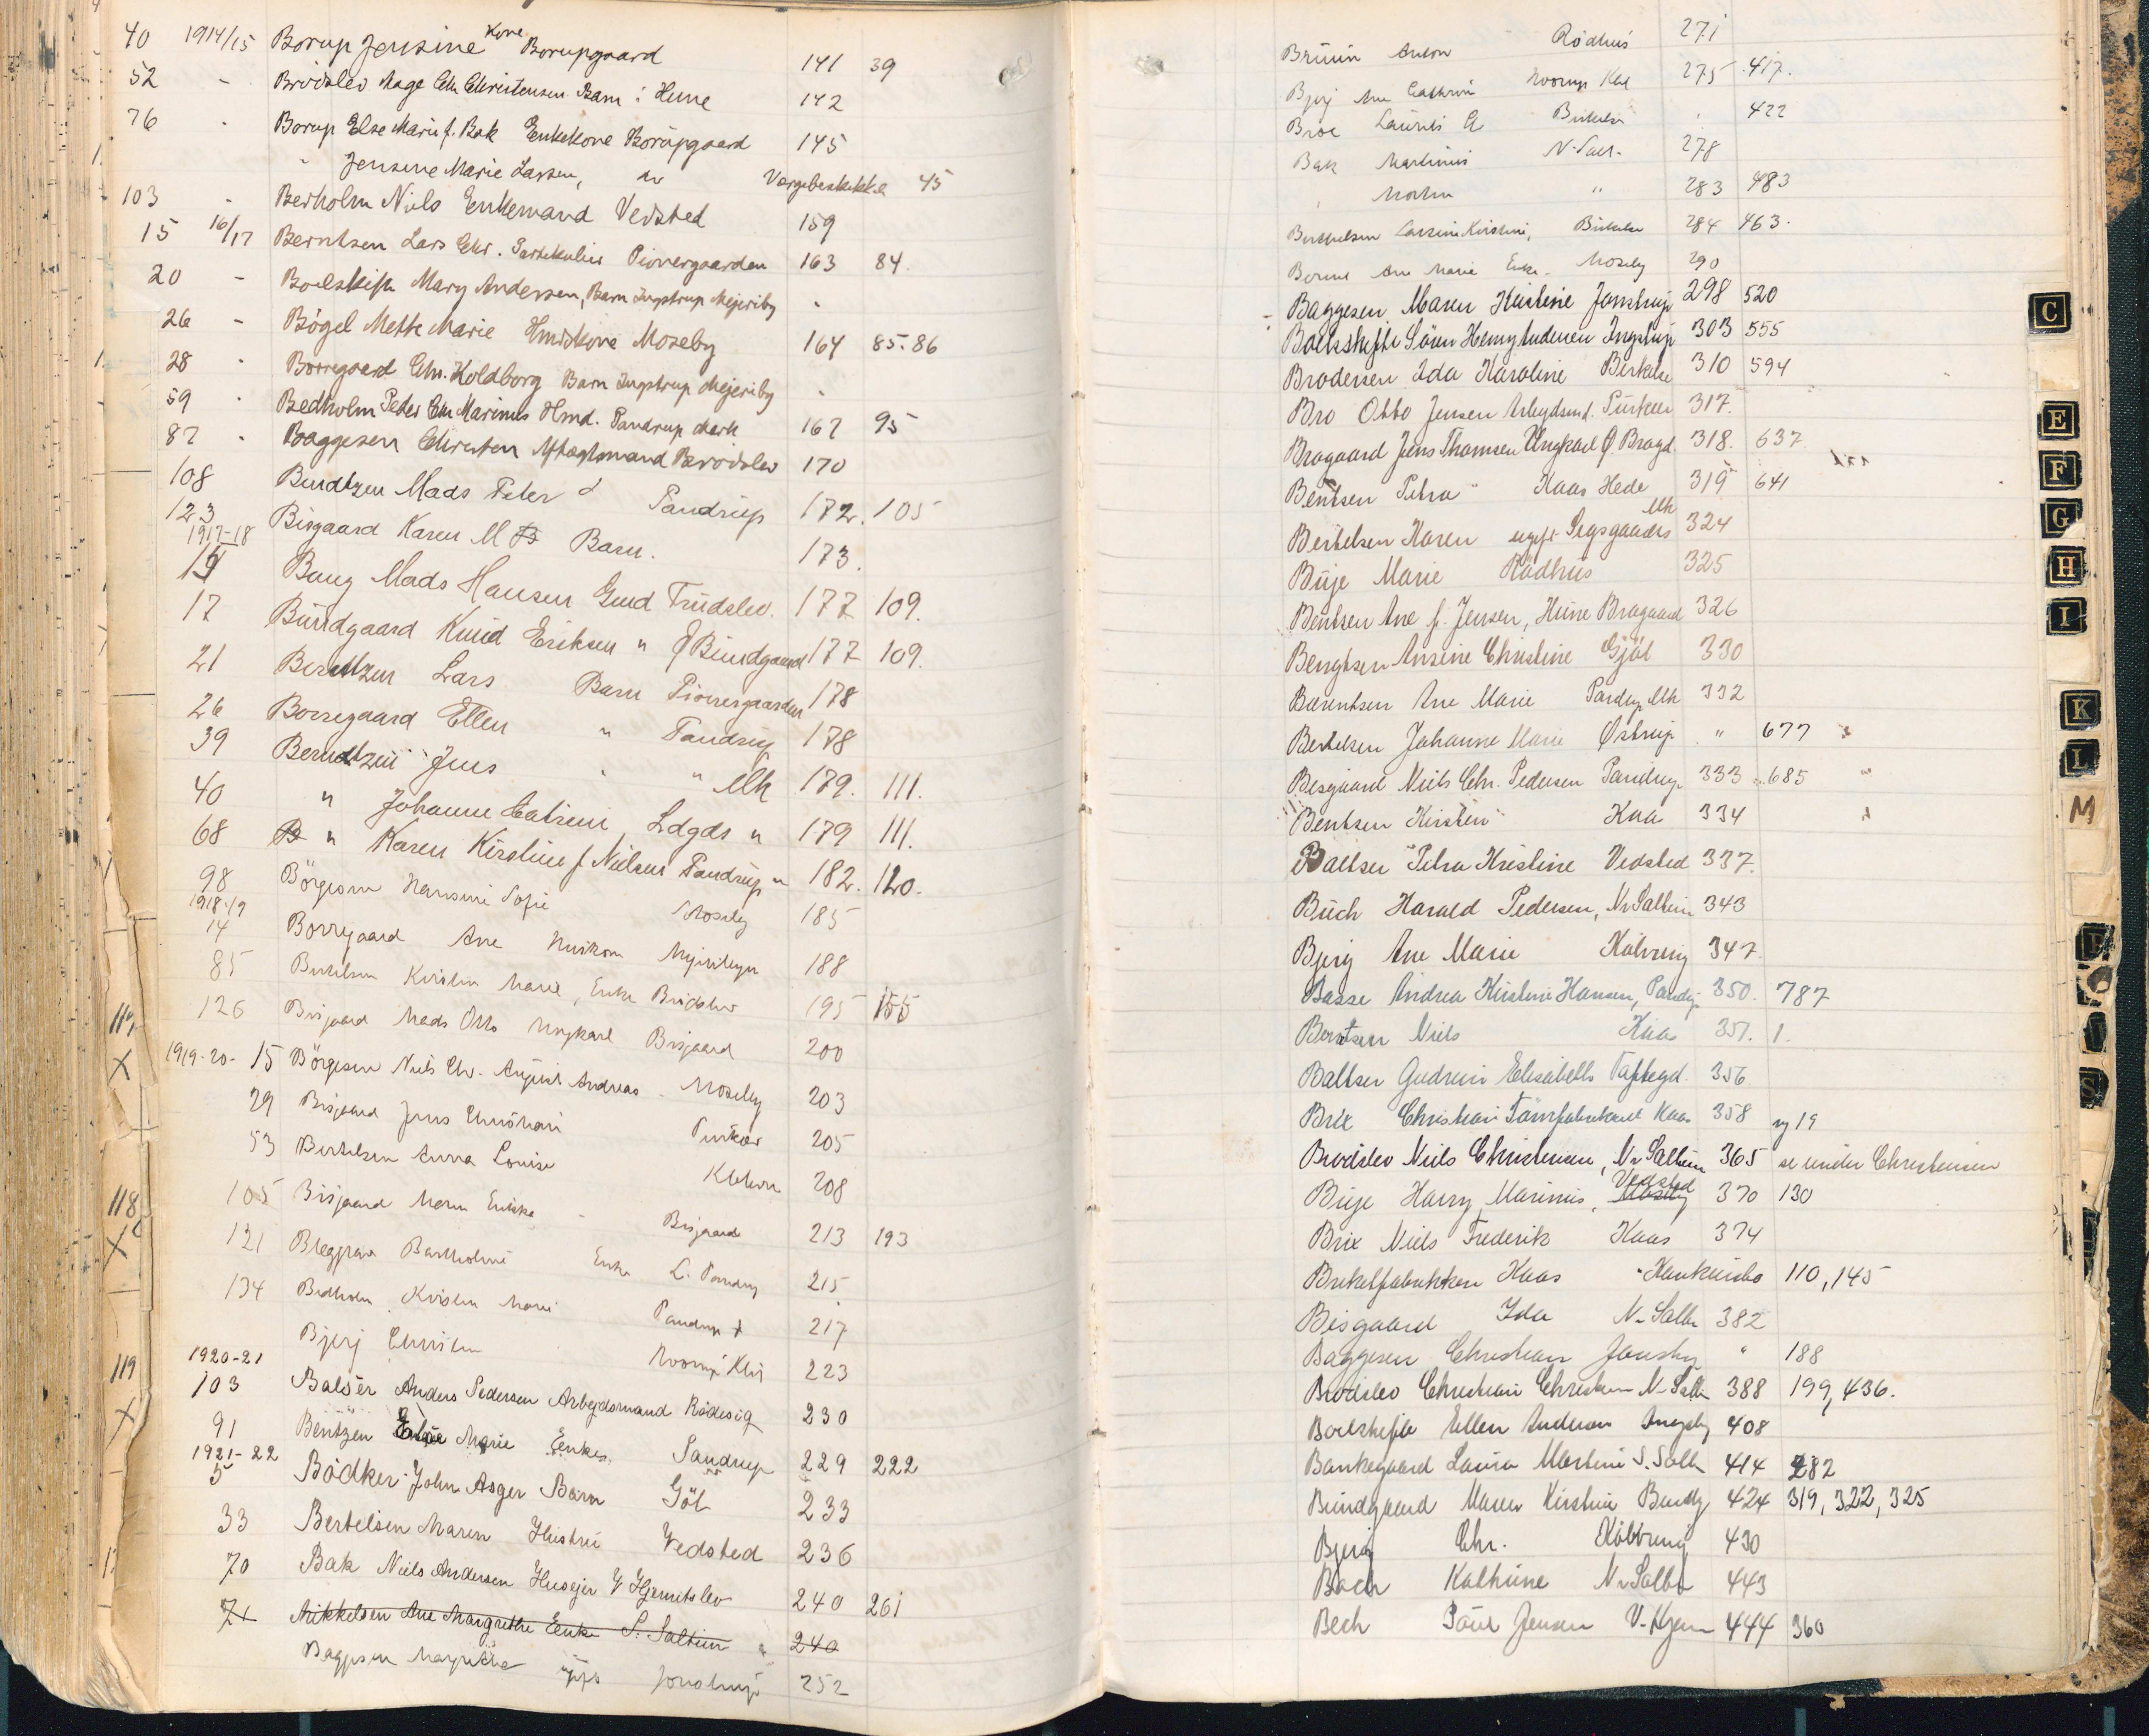 40 1914/15 Borup Jensine Kone Borupgaard 141 39
52 - Brödslev Aage Chr Christensen Barn i Hune 142
76 - Borup Else Marie f. Bak Enkekone Borupgaard 145
" Jensine Marie Larsen, Værgebeskikkelse 45
103 - Berholm Niels Enkemand Vedsted 159
15 16/17 Berntsen Lars Chr. Partikulier Pionergaarden 163 84
20 - Boelskifte Mary Andersen, Barn Ingstrup Mejeriby "
26 - Bögel Mette Marie Hmdskone Moseby 164 85.86
28 - Borregaard Chr. Koldborg Barn Ingstrup Mejeriby "
59 - Bedholm Peder Chr Marinus Hmd. Pandrup Mark 167 95
87 - Baggesen Christen Aftægtsmand Brødslev 170
108 Berndtzen Mads Peter Pandrup 172. 105
123 Bisgaard Karen M Barn. 173.
1917-18
14 Bang Mads Hansen Gmd Trudslev. 177 109.
17 Bundgaard Knud Eriksen " Bundgaard 177 109.
21 Berndtzen Lars Barn Pionergaarden 178
26 Borregaard Ellen " Pandrup 178
39 Berndtzen Jens " " Mk 179. 111.
40 " Johanne Catrine Ldgds " 179 111.
68 " Karen Kirstine f Nielsen Pandrup " 182. 120.
98 Börgesen Hansine Sofie Moseby 185
1918-19
14 Borregaard Ane Huskone Mejeribyen 188
85 Bertelsen Kirsten Marie, Enke Brödslev 195 155
126 Bisgaard Mads Otto Ungkarl Bisgaard 200
1919-20- 15 Börgesen Niels Chr. August Andreas - Moseby 203
29 Bisgaard Jens Christian Purkær 205
53 Bertelsen Anna Louise Klitten 208
105 Bisgaard Maren Enke - Bisgaard 213 193
121 Blegpav Bartholine Enke L. Pandrup 215
134 Bedholm Kirsten Marie Pandrup 217
Bjerg Christen Moorup Klit 223
1920-21
103 Balsér Anders Pedersen Arbejdsmand Rödesig 230
91 Bentzen Else Marie Enke Pandrup 229 222
1921-22
5 Bödker John Asger Barn Göl 233
33 Bertelsen Maren Hustru Vedsted 236
70 Bak Niels Andersen Husejer V Hjermitslev 240 261
71 Mikkelsen Ane Margrethe Enke S. Saltum " 240
Baggesen Margrethe ugift Jonstrup 252
117
118
119
Bruun Anton Rödhus 271
Bjerg Ane Cathrine Moorup Klit 275 417.
Broe Laurits C Birkelse " 422
Bak Martinus N. Salt. 278
" Morten " 283 483
Berthelsen Larsine Kirstine, Birkelse 284 463.
Borup Ane Marie Enke. Moseby 290
Baggesen Maren Kirstine Jonstrup 298 520
Boelskifte Sören Henry Andersen Ingstrup 303 555
Brodersen Ida Karoline Birkelse 310 594
Bro Otto Jensen Arbejdsmd. Purkær 317.
Bragaard Jens Thomsen Ungkarl Ø Bragd. 318. 637
Bentsen Petra Kaas Hede 319 641
Bertelsen Karen ugift Segsgaards Mk 324
Buje Marie Rödhus 325
Bentsen Ane f. Jensen, Hune Bragaard 326
Bengtsen Ansine Christine Gjöl 330
Barentsen Ane Marie Pandrup Mk 332
Bertelsen Johanne Marie Østrup " 677
Besgaard Niels Chr. Pedersen Pandrup 333 685
Bentsen Kirsten Kaa 334
Baltser Petra Kristine Vedsted 337.
Buch Harald Pedersen, Nr Saltum 343
Bjerg Ane Marie Kølvring 347.
Basse Andrea Kirstine Hansen, Pandrup 350. 787
Berntsen Niels Kaas 351. 1.
Baltser Gudrun Elisabeth Toftegd. 356
Brix Christian Tömrfabrikant Kaas 358 ny 19
Brödslev Niels Christensen, Nr Saltum 365 se under Christensen
Buje Harry Marinus, Moseby Vedsted 370 130
Brix Niels Frederik Kaas 374
Briketfabrikken Kaas Konkursbo 110, 145
Bisgaard Ida N. Saltu 382
Baggesen Christian Jonstrup " 188
Brødslev Christian Christensen N. Saltu 388 199, 436.
Boelskifte Ellen Andersen Ingstrup 408
Bankegaard Laura Martine S. Saltu 414 282
Bundgaard Maren Kirstine Bundg. 424 319, 322, 325
Bjerg Chr. Kölvring 430
Bach Kathrine Nr Saltu 443
Bech Poul Jensen V. Hjerm 444 360
C
E
F
G
H
I
K
L
M
S